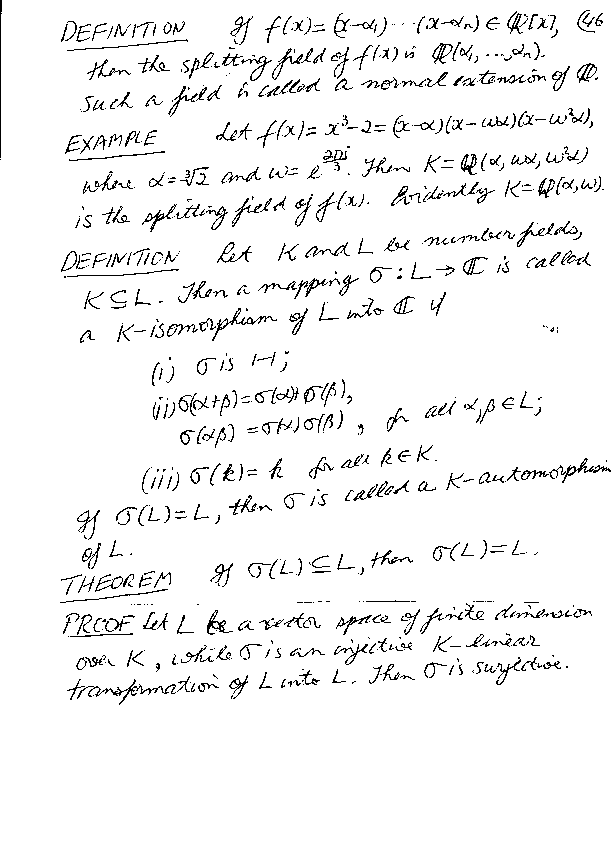 DEFINITION If f(x)=(x-α₁)⋯(x-αₙ) ∈ ℚ[x], (46
then the splitting field of f(x) is ℚ(α₁, …, αₙ).
Such a field is called a normal extension of ℚ.
EXAMPLE Let f(x)=x³-2=(x-α)(x-ωα)(x-ω²α),
where α=∛2 and ω=e^{2πi/3}. Then K=ℚ(α, ωα, ω²α)
is the splitting field of f(x). Evidently K=ℚ(α,ω).
DEFINITION Let K and L be number fields,
K⊆L. Then a mapping σ:L→ℂ is called
a K-isomorphism of L into ℂ if
(i) σ is 1-1;
(ii) σ(α+β)=σ(α)+σ(β),
σ(αβ)=σ(α)σ(β), for all α,β∈L;
(iii) σ(k)=k for all k∈K.
If σ(L)=L, then σ is called a K-automorphism
of L.
THEOREM If σ(L)⊆L, then σ(L)=L.
PROOF Let L be a vector space of finite dimension
over K, while σ is an injective K-linear
transformation of L into L. Then σ is surjective.